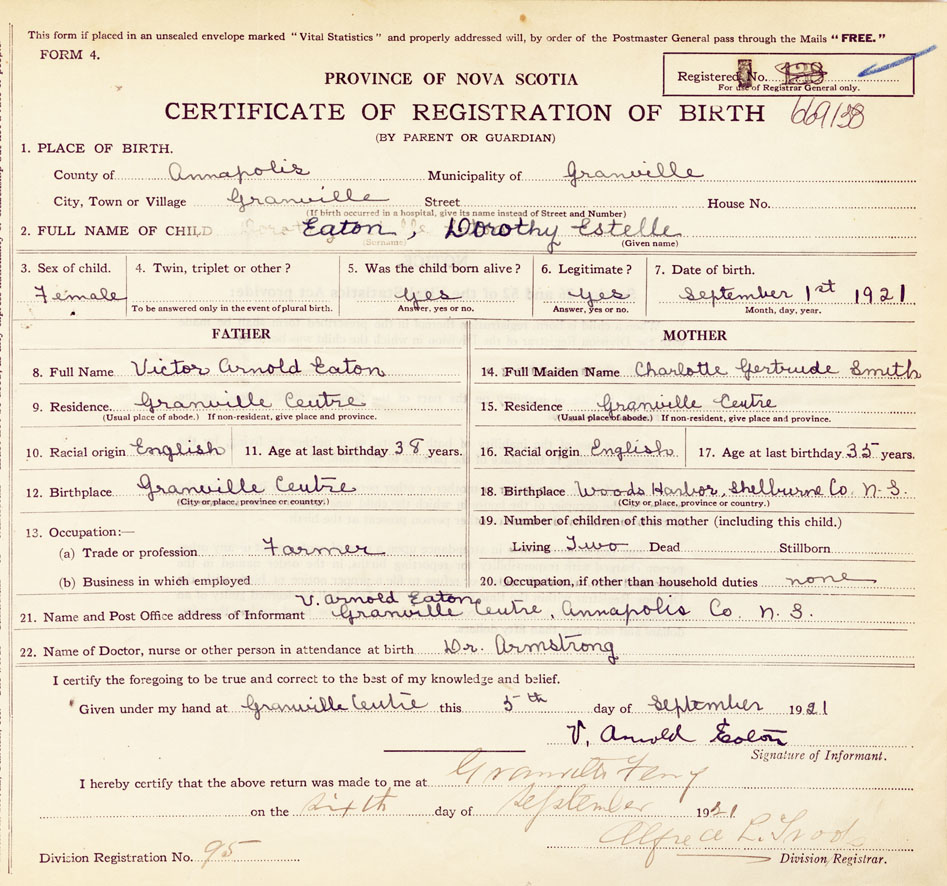 This form if placed in an unsealed envelope marked "Vital Statistics" and properly addressed will, by order of the Postmaster General pass through the Mails "FREE."
FORM 4.
Registered No.
For use of Registrar General only.
PROVINCE OF NOVA SCOTIA
CERTIFICATE OF REGISTRATION OF BIRTH 669138
(BY PARENT OR GUARDIAN)
1. PLACE OF BIRTH.
County of Annapolis Municipality of Granville
City, Town or Village Granville Street House No.
(If birth occurred in a hospital, give its name instead of Street and Number)
2. FULL NAME OF CHILD Eaton, Dorothy Estelle
(Surname) (Given name)
3. Sex of child. 4. Twin, triplet or other? 5. Was the child born alive? 6. Legitimate? 7. Date of birth.
Female Yes Yes September 1st 1921
To be answered only in the event of plural birth. Answer, yes or no. Answer, yes or no. Month, day, year.
FATHER MOTHER
8. Full Name Victor Arnold Eaton 14. Full Maiden Name Charlotte Gertrude Smith
9. Residence. Granville Centre 15. Residence Granville Centre
(Usual place of abode.) If non-resident, give place and province. (Usual place of abode.) If non-resident, give place and province.
10. Racial origin English 11. Age at last birthday 38 years. 16. Racial origin English 17. Age at last birthday 35 years.
12. Birthplace Granville Centre 18. Birthplace Woods Harbor, Shelburne Co. N.S.
(City or place, province or country.) (City or place, province or country.)
13. Occupation:— 19. Number of children of this mother (including this child.)
(a) Trade or profession Farmer Living Two Dead Stillborn
(b) Business in which employed 20. Occupation, if other than household duties none
V. Arnold Eaton
21. Name and Post Office address of Informant Granville Centre, Annapolis Co. N.S.
22. Name of Doctor, nurse or other person in attendance at birth Dr. Armstrong
I certify the foregoing to be true and correct to the best of my knowledge and belief.
Given under my hand at Granville Centre this 5th day of September 1921
V. Arnold Eaton
Signature of Informant.
I hereby certify that the above return was made to me at Granville Ferry
on the sixth day of September 1921
Alfred L.
Division Registration No. 95 Division Registrar.